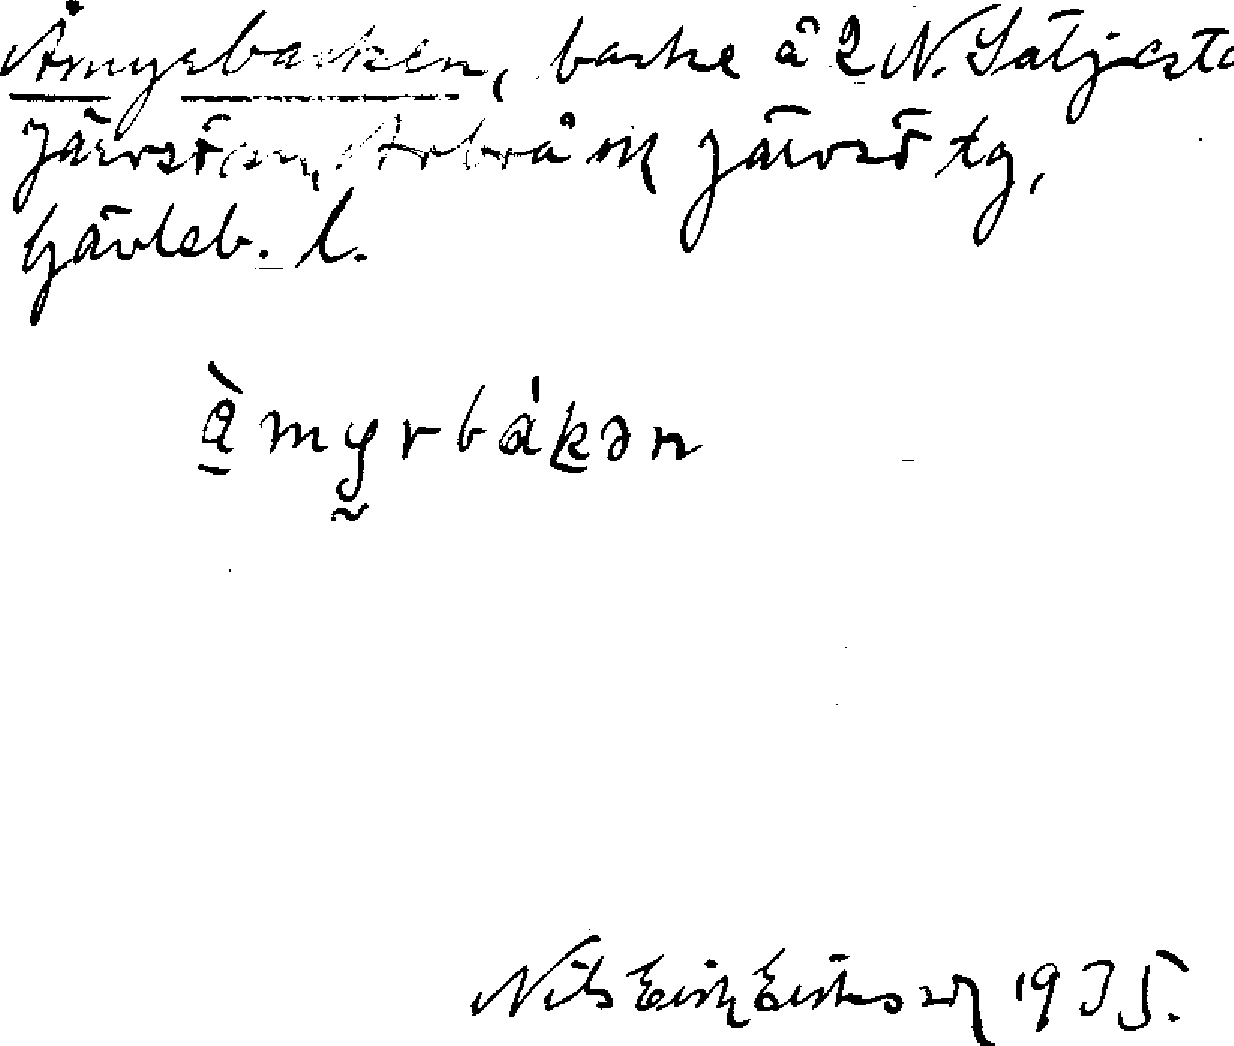 Åmyrbacken, backe å 2 N. Sätjesta
Järvsö sn, Arbrå och Järvsö tg,
Gävleb. l.
àmyrbákən
Nils Erik Eriksson 1935.